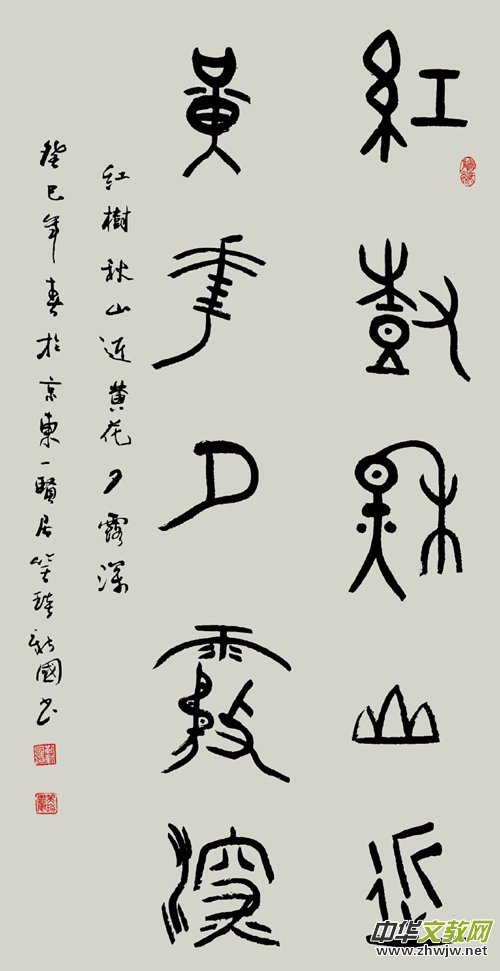 紅樹秋山近
黃華夕露深
红樹秋山近黄花夕露深
癸巳年春於京東一賢居國书
中华文教网
www.zhwjw.net